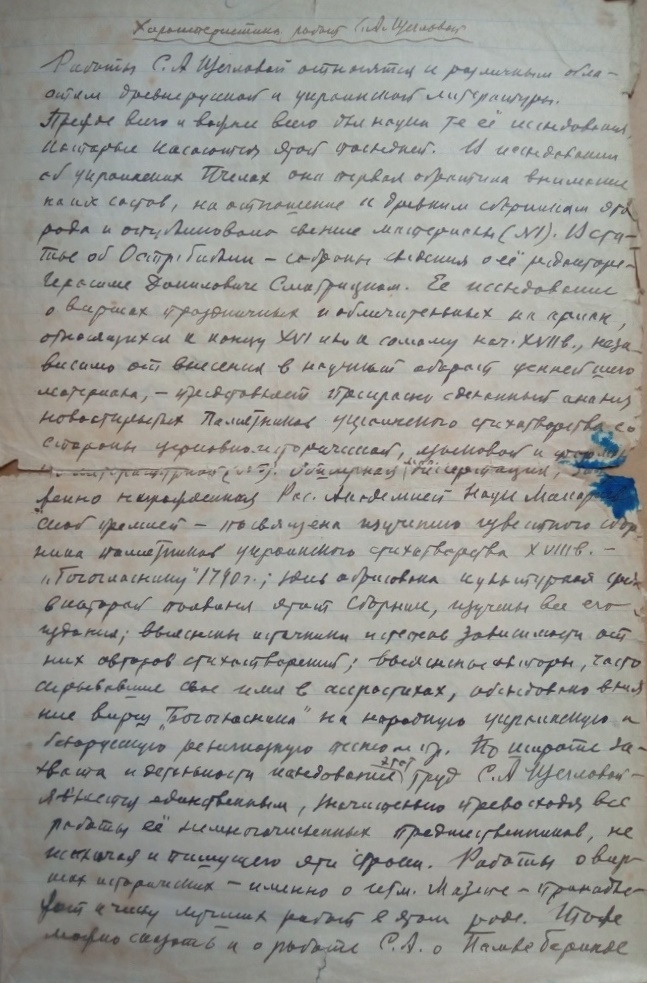 Характеристика работ С. А. Щегловой
Работы С. А Щегловой относятся к различным обла-
стям древнерусской и украинской литературы.
Прежде всего и важнее всего для науки те её исследования,
которые касаются этой последней. В исследовании
об украинских Пчелах она первая обратила внимание
на их состав, на отношение к древним сборникам этого
рода и опубликовала свежие материалы (№1). В ста-
тье об Остр. Библии – собраны сведения о её редакторе –
Герасиме Даниловиче Смотрицком. Ее исследование
о виршах праздничных и обличительных на ариан,
относящихся к концу XVI или к самому нач. XVII в., неза-
висимо от внесения в научный оборот ценнейшего
материала, – представляет прекрасно сделанный анализ
новооткрытых памятников украинского стихотворства со
стороны церковно-исторической, языковой и
и литературной Обширная диссертация,
ренно награжденная Рос. Академией Наук
ской премией – посвящена изучению известного сбор-
ника памятников украинского стихотворства XVIII в. –
„Богогласнику" 1790 г.; здесь обрисована культурная среда
в которой появился этот сборник, изучены все его
издания; выяснены источники и степень зависимости от
них авторов стихотворений; выяснены авторы, часто
скрывавшие свое имя в акростихах, обследовано влия
ние вирш „Богогласника" на народную украинскую и
белорусскую религиозную песню и др. По широте за-
хвата и детальности исследования этот труд С. А Щегловой –
является единственным, значительно превосходя все
работы её немногочисленных предшественников, не
исключая и пишущего эти строки. Работы о вир-
шах исторических – именно о гетм. Мазепе – принадле-
жат к числу лучших работ в этом роде. Тоже
можно сказать и о работе С. А. о Памве Берынде